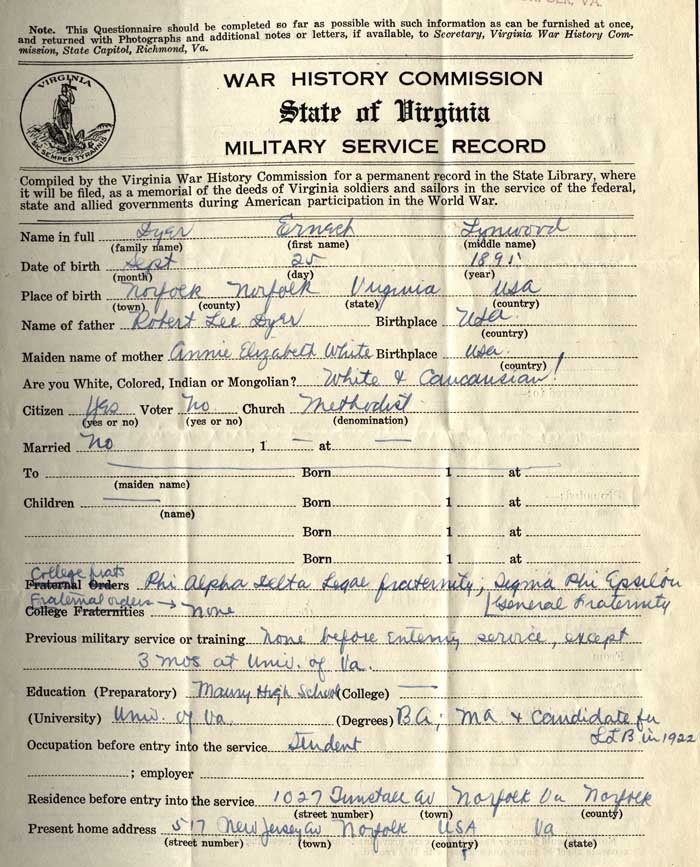 NORFOLK, VA.
Note. This Questionnaire should be completed so far as possible with such information as can be furnished at once,
and returned with Photographs and additional notes or letters, if available, to Secretary, Virginia War History Com-
mission, State Capitol, Richmond, Va.
VIRGINIA
SIC SEMPER TYRANNIS
WAR HISTORY COMMISSION
State of Virginia
MILITARY SERVICE RECORD
Compiled by the Virginia War History Commission for a permanent record in the State Library, where
it will be filed, as a memorial of the deeds of Virginia soldiers and sailors in the service of the federal,
state and allied governments during American participation in the World War.
Name in full Dyer Lynwood
(family name) (first name) (middle name)
Date of birth Sept 25
(month) (day) (year)
Place of birth Norfolk Norfolk Virginia USA
(town) (county) (state) (country)
Name of father Robert Lee Dyer Birthplace USA
(country)
Maiden name of mother Annie Elizabeth White Birthplace USA.
(country)
Are you White, Colored, Indian or Mongolian? White & Caucausian!
Citizen Yes Voter No Church Methodist
(yes or no) (yes or no) (denomination)
Married No , 1 — at —
To Born 1 at
(maiden name)
Children Born 1 at
(name)
Born 1 at
Born 1 at
College frats
Fraternal Orders Phi Alpha Delta Legal fraternity; Sigma Phi Epsilon
Fraternal orders → General Fraternity
College Fraternities None
Previous military service or training None before entering service, except
3 mos at Univ. of Va.
Education (Preparatory) Maury High School (College) —
(University) Univ. of Va. (Degrees) BA; MA & Candidate for
LLB in 1922
Occupation before entry into the service Student
; employer
Residence before entry into the service 1027 Tunstall Av Norfolk Va Norfolk
(street number) (town) (county)
Present home address 517 New Jersey av Norfolk USA Va
(street number) (town) (country) (state)